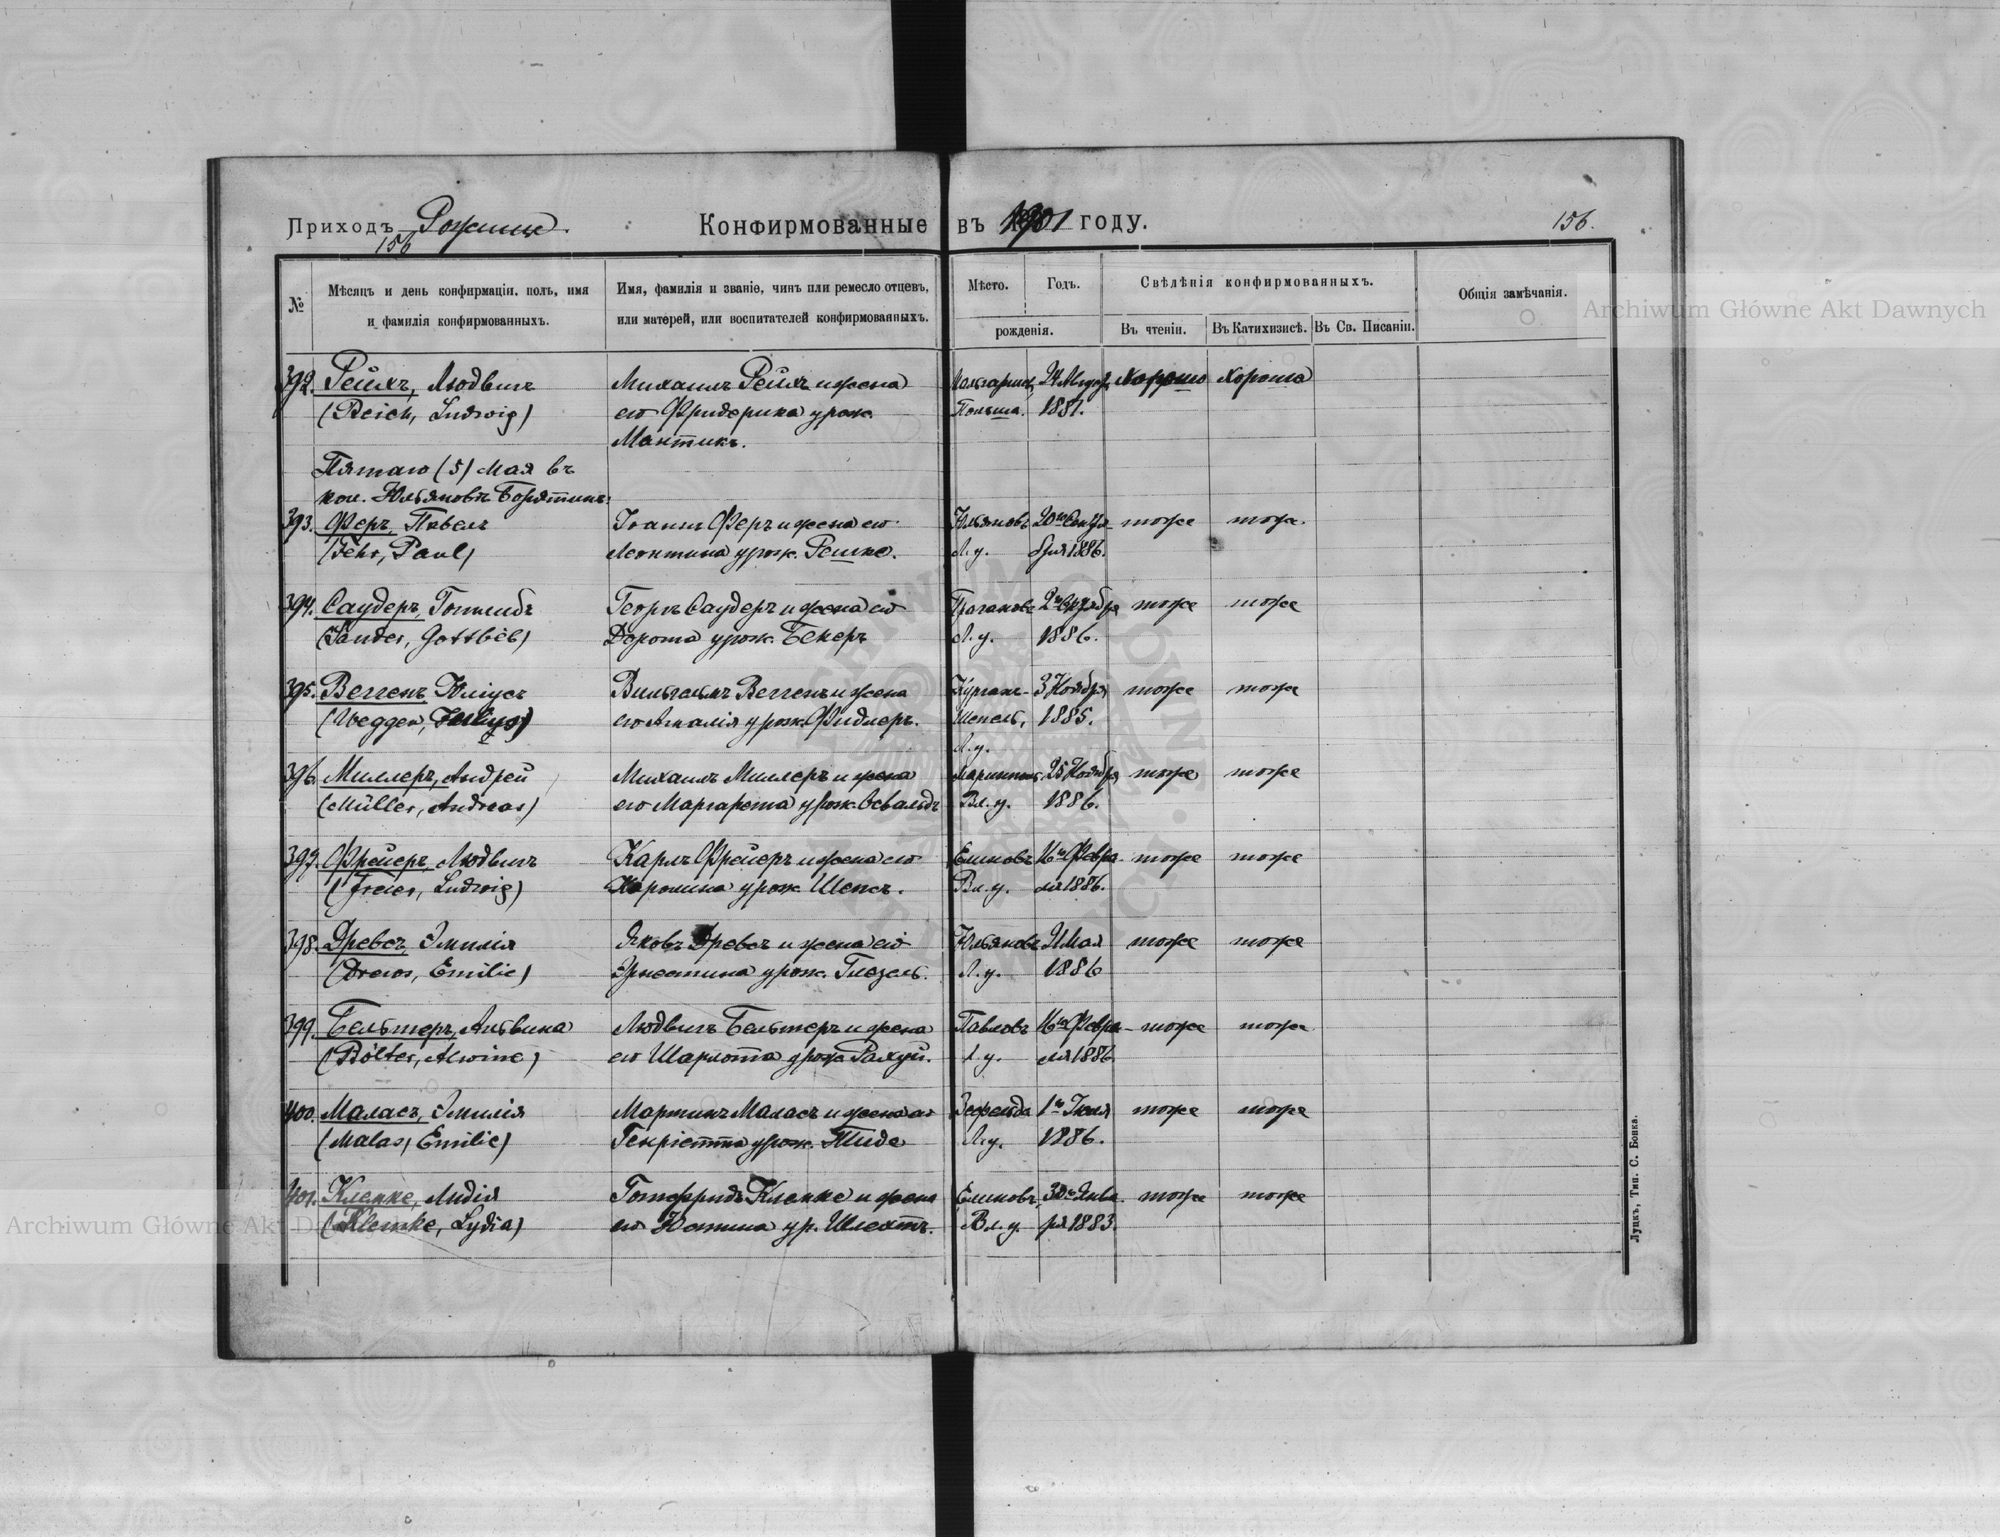 Приходъ Рожище.
156
Конфирмованные въ 1901 году.
156.
№
Мѣсяцъ и день конфирмаціи, полъ, имя
и фамилія конфирмованныхъ.
Имя, фамилія и званіе, чинъ или ремесло отцевъ,
или матерей, или воспитателей конфирмованныхъ.
Мѣсто.
Годъ.
рожденія.
Свѣдѣнія конфирмованныхъ.
Въ чтеніи.
Въ Катихизисѣ.
Въ Св. Писаніи.
Общія замѣчанія.
392. Рейхъ, Людвигъ
(Reich, Ludwig)
Михаилъ Рейхъ и жена
его Фридерика урож.
Мантикъ.
Польша.
1881.
хорошо хорошо
Пятаго (5) Мая въ
кол. Юльяновъ
393. Феръ, Павелъ
(Fehr, Paul)
Іоаннъ Феръ и жена его
Леонтина урож. Решке.
Юльяновъ
Л. у.
20го Сентя-
бря 1886.
тоже тоже
394. Саудеръ, Готлибъ
(Sauder, Gottlieb)
Георгъ Саудеръ и жена его
Дорота урож. Бекеръ
Л. у.
1886.
тоже тоже
395. Веггенъ, Юліусъ
(Weggen, Julius)
Вильгельмъ Веггенъ и жена
его Амалія урож. Фидлеръ.
Курганъ-
Шепель,
Л. у.
3 Ноября
1885.
тоже тоже
396. Миллеръ, Андрей
(Müller, Andreas)
Михаилъ Миллеръ и жена
его Маргарета урож. Освальдъ
Вл. у.
25 Ноября
1886.
тоже тоже
397. Фрейеръ, Людвигъ
(Freier, Ludwig)
Карлъ Фрейеръ и жена его
Каролина урож. Шепсъ.
Елиновъ
Вл. у.
16го Февра-
ля 1886.
тоже тоже
398. Древсъ, Эмилія
(Drews, Emilie)
Яковъ Древсъ и жена его
Эрнестина урож. Глезель.
Юльяновъ
Л. у.
21 Мая
1886
тоже тоже
399. Бельтеръ, Альвина
(Bölter, Alwine)
Людвигъ Бельтеръ и жена
его Шарлотта урож.
Павловъ
Л. у.
16го Февра-
ля 1886
тоже тоже
400. Маласъ, Эмилія
(Malas, Emilie)
Мартинъ Маласъ и жена его
Генріетта урож. Тиде
Зеефельда
Л. у.
1го Іюля
1886.
тоже тоже
401. Клемке, Лидія
(Klemke, Lydia)
Готфридъ Клемке и жена
его Юстина ур. Шлехтъ.
Елиновъ
Вл. у.
30го Янва-
ря 1883.
тоже тоже
Луцкъ, Тип. С. Бонка.
Archiwum Główne Akt Dawnych
Archiwum Główne Akt Da